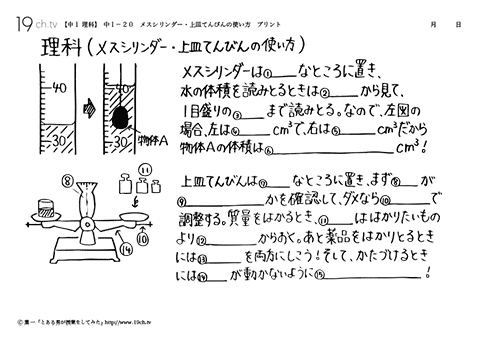 19ch.tv 【中1 理科】 中1-20 メスシリンダー・上皿てんびんの使い方 プリント 月 日
理科(メスシリンダー・上皿てんびんの使い方)
40
30
40
30
物体A
メスシリンダーは①____なところに置き、
水の体積を読みとるときは②____から見て、
1目盛りの③____まで読みとる。なので、左図の
場合、左は④____cm³で、右は⑤____cm³だから
物体Aの体積は⑥____cm³!
⑧
⑪
⑩
⑭
上皿てんびんは⑦____なところに置き、まず⑧____が
⑨____かを確認して、ダメなら⑩____で
調整する。質量をはかるとき、⑪____ははかりたいもの
より⑫____からおく。あと薬品をはかりとるとき
には⑬____を両方にしこう!そして、かたづけるとき
には⑭____が動かないように⑮____!
Ⓒ 葉一「とある男が授業をしてみた」http://www.19ch.tv